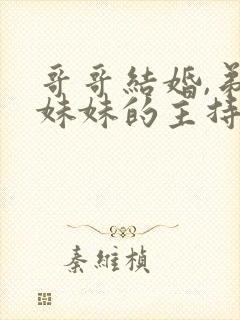 哥哥結婚,弟
妹妹的主持
秦維楨